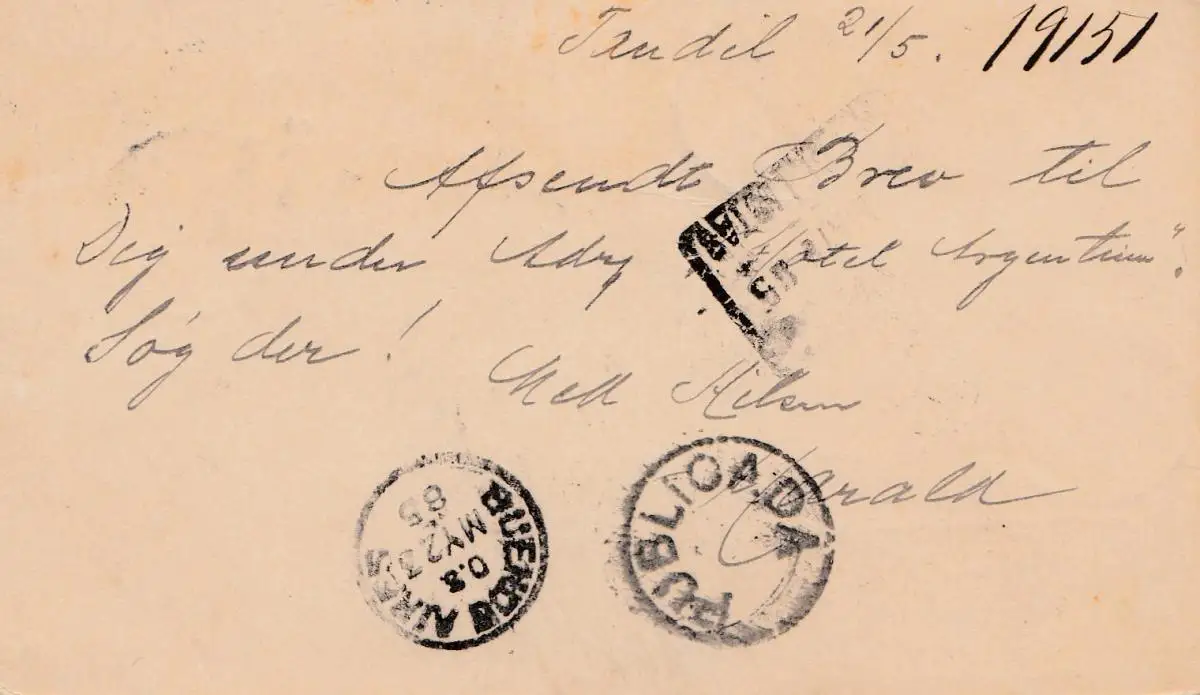 Tandil 21/5. 19151
Afsendt Brev til
Dig under Adr, "Hotel Argentina".
Søg der!
Hilsen
Harald
BUENOS AIRES
O.3.
MY 23
85
PUBLICADA